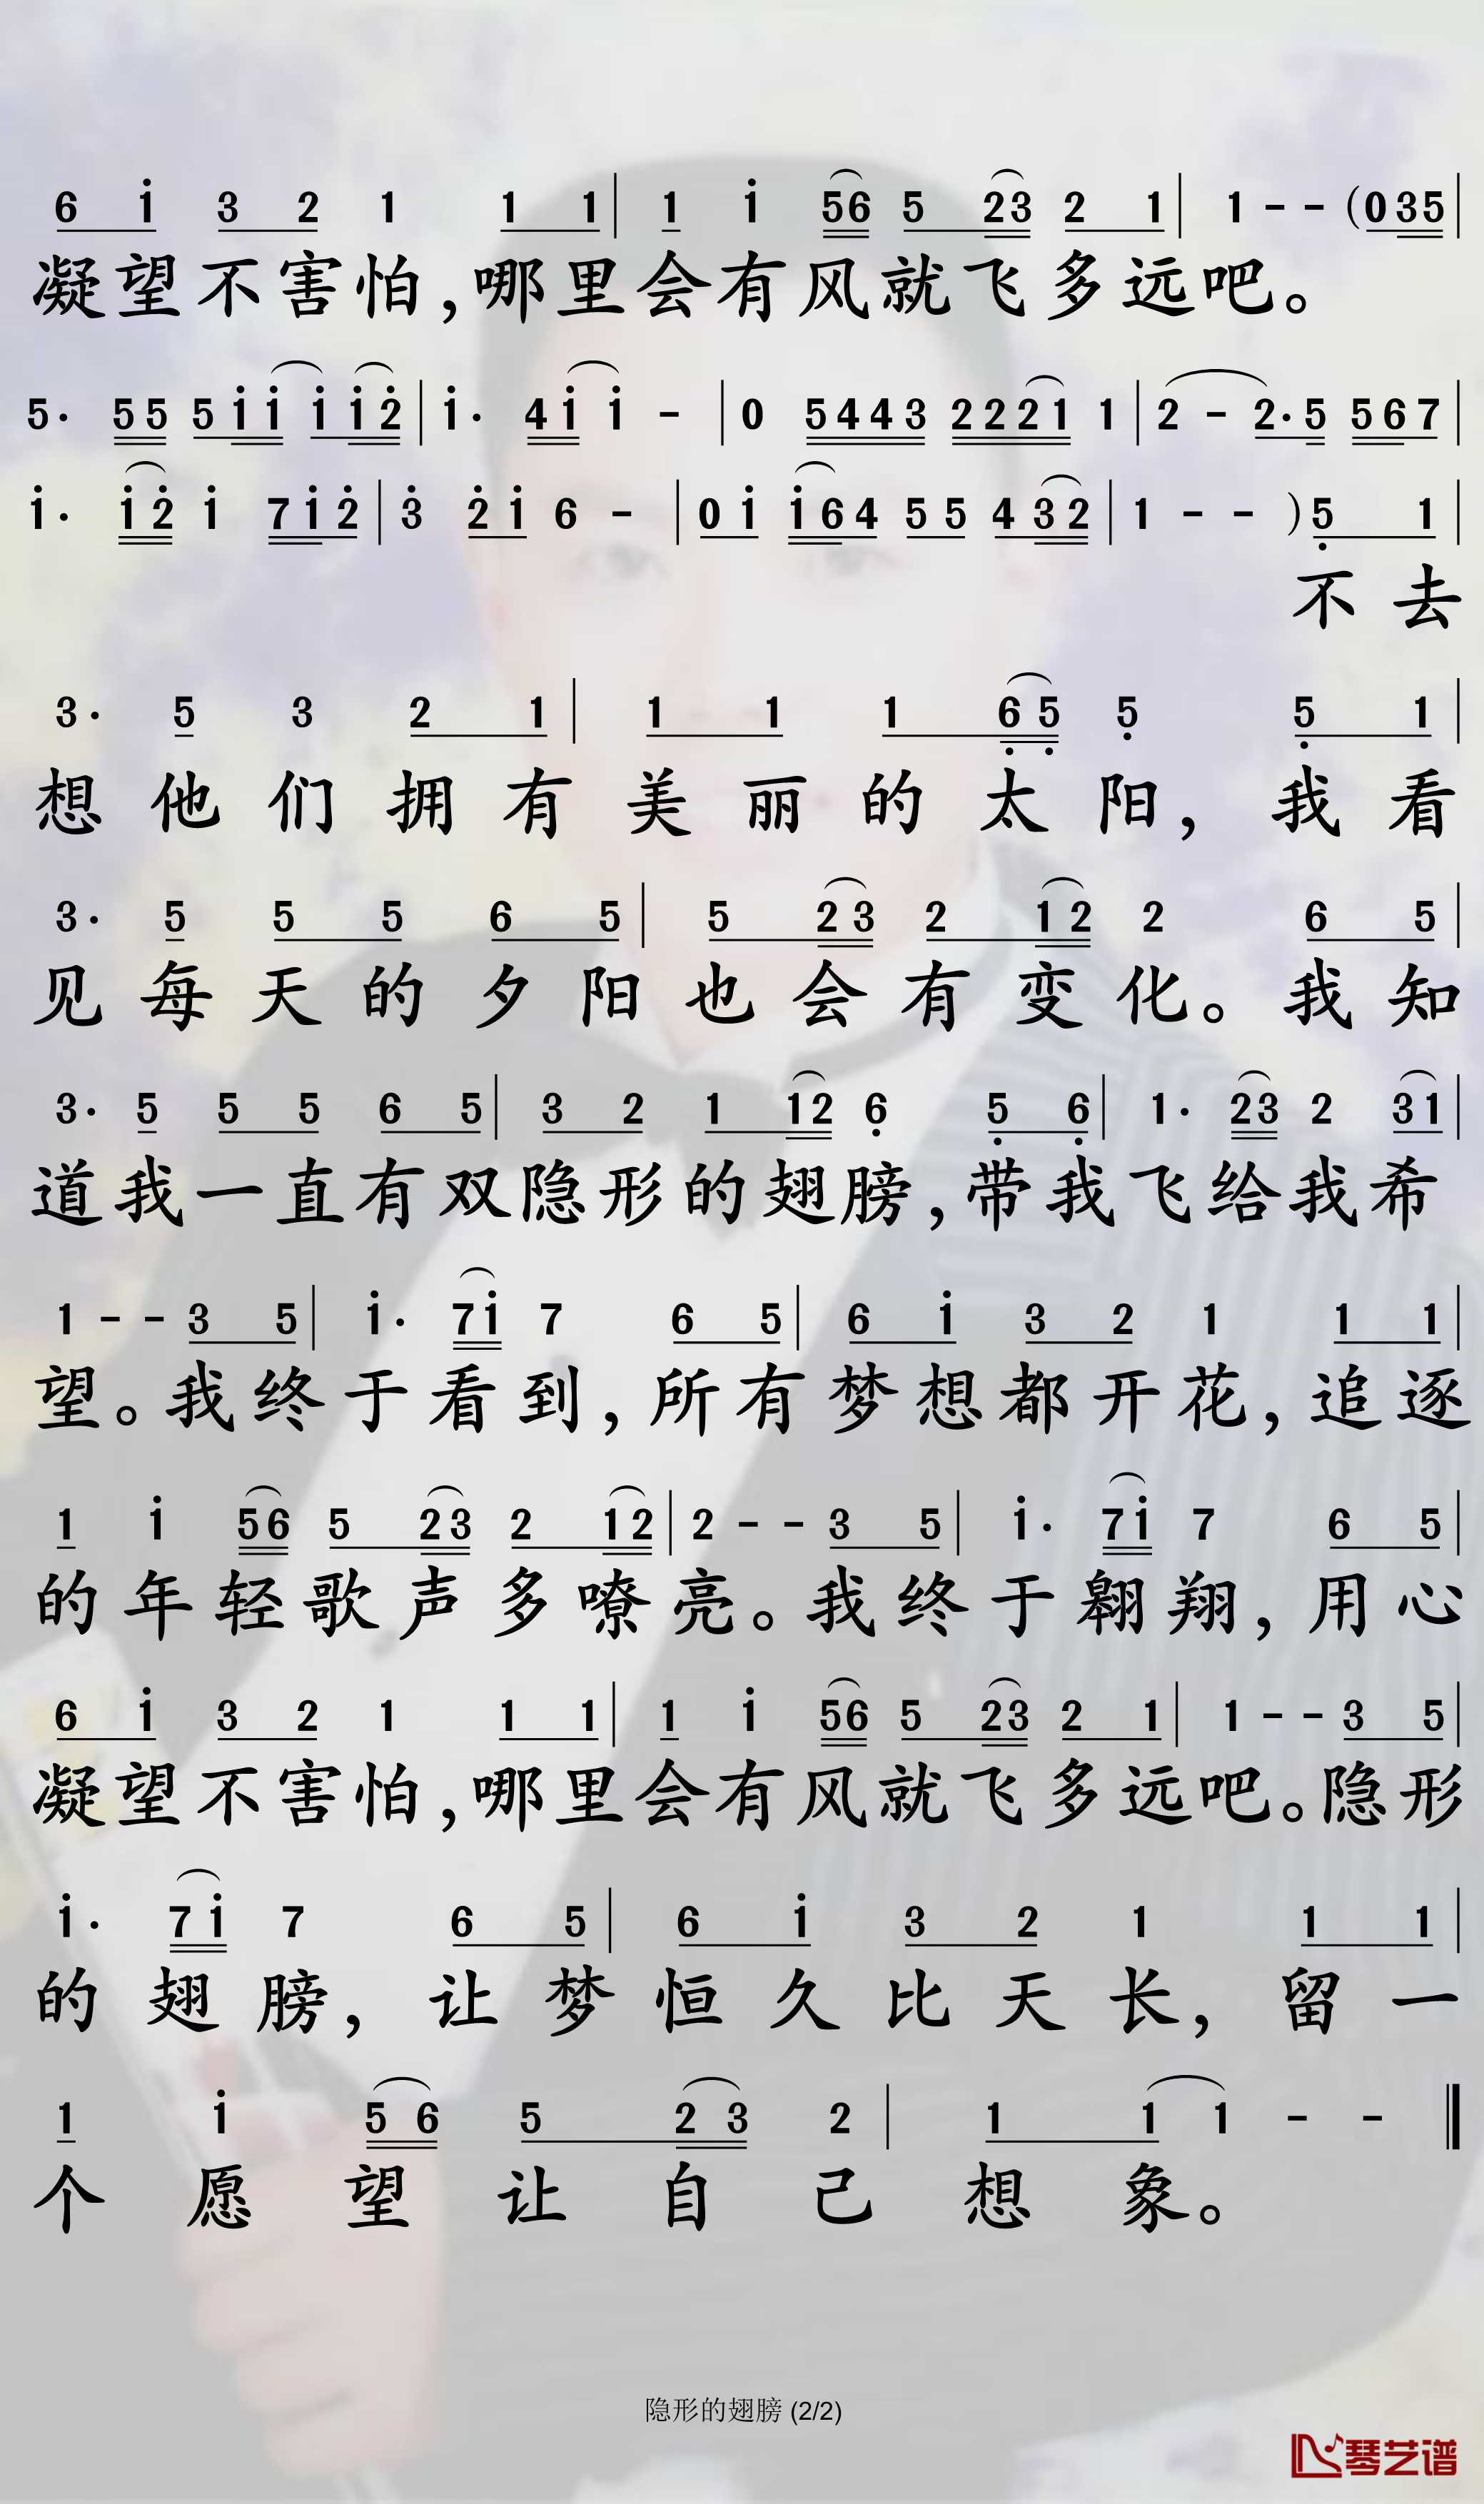 6 i 3 2 1 1 1 | 1 i 56 5 23 2 1 | 1 - - (035 |
凝望不害怕,哪里会有风就飞多远吧。
5· 55 5ii ii2 | i· 4i i - | 0 5443 2221 1 | 2 - 2·5 567 |
i· i2 i 7i2 | 3 2i 6 - | 0i i64 55 432 | 1 - - )5 1 |
不去
3· 5 3 2 1 | 1 1 1 65 5 5 1 |
想他们拥有美丽的太阳,我看
3· 5 5 5 6 5 | 5 23 2 12 2 6 5 |
见每天的夕阳也会有变化。我知
3· 5 5 5 6 5 | 3 2 1 12 6 5 6 | 1· 23 2 31 |
道我一直有双隐形的翅膀,带我飞给我希
1 - - 3 5 | i· 7i 7 6 5 | 6 i 3 2 1 1 1 |
望。我终于看到,所有梦想都开花,追逐
1 i 56 5 23 2 12 | 2 - - 3 5 | i· 7i 7 6 5 |
的年轻歌声多嘹亮。我终于翱翔,用心
6 i 3 2 1 1 1 | 1 i 56 5 23 2 1 | 1 - - 3 5 |
凝望不害怕,哪里会有风就飞多远吧。隐形
i· 7i 7 6 5 | 6 i 3 2 1 1 1 |
的翅膀,让梦恒久比天长,留一
1 i 56 5 23 2 | 1 1 1 - - ‖
个愿望让自己想象。
隐形的翅膀 (2/2)
琴艺谱